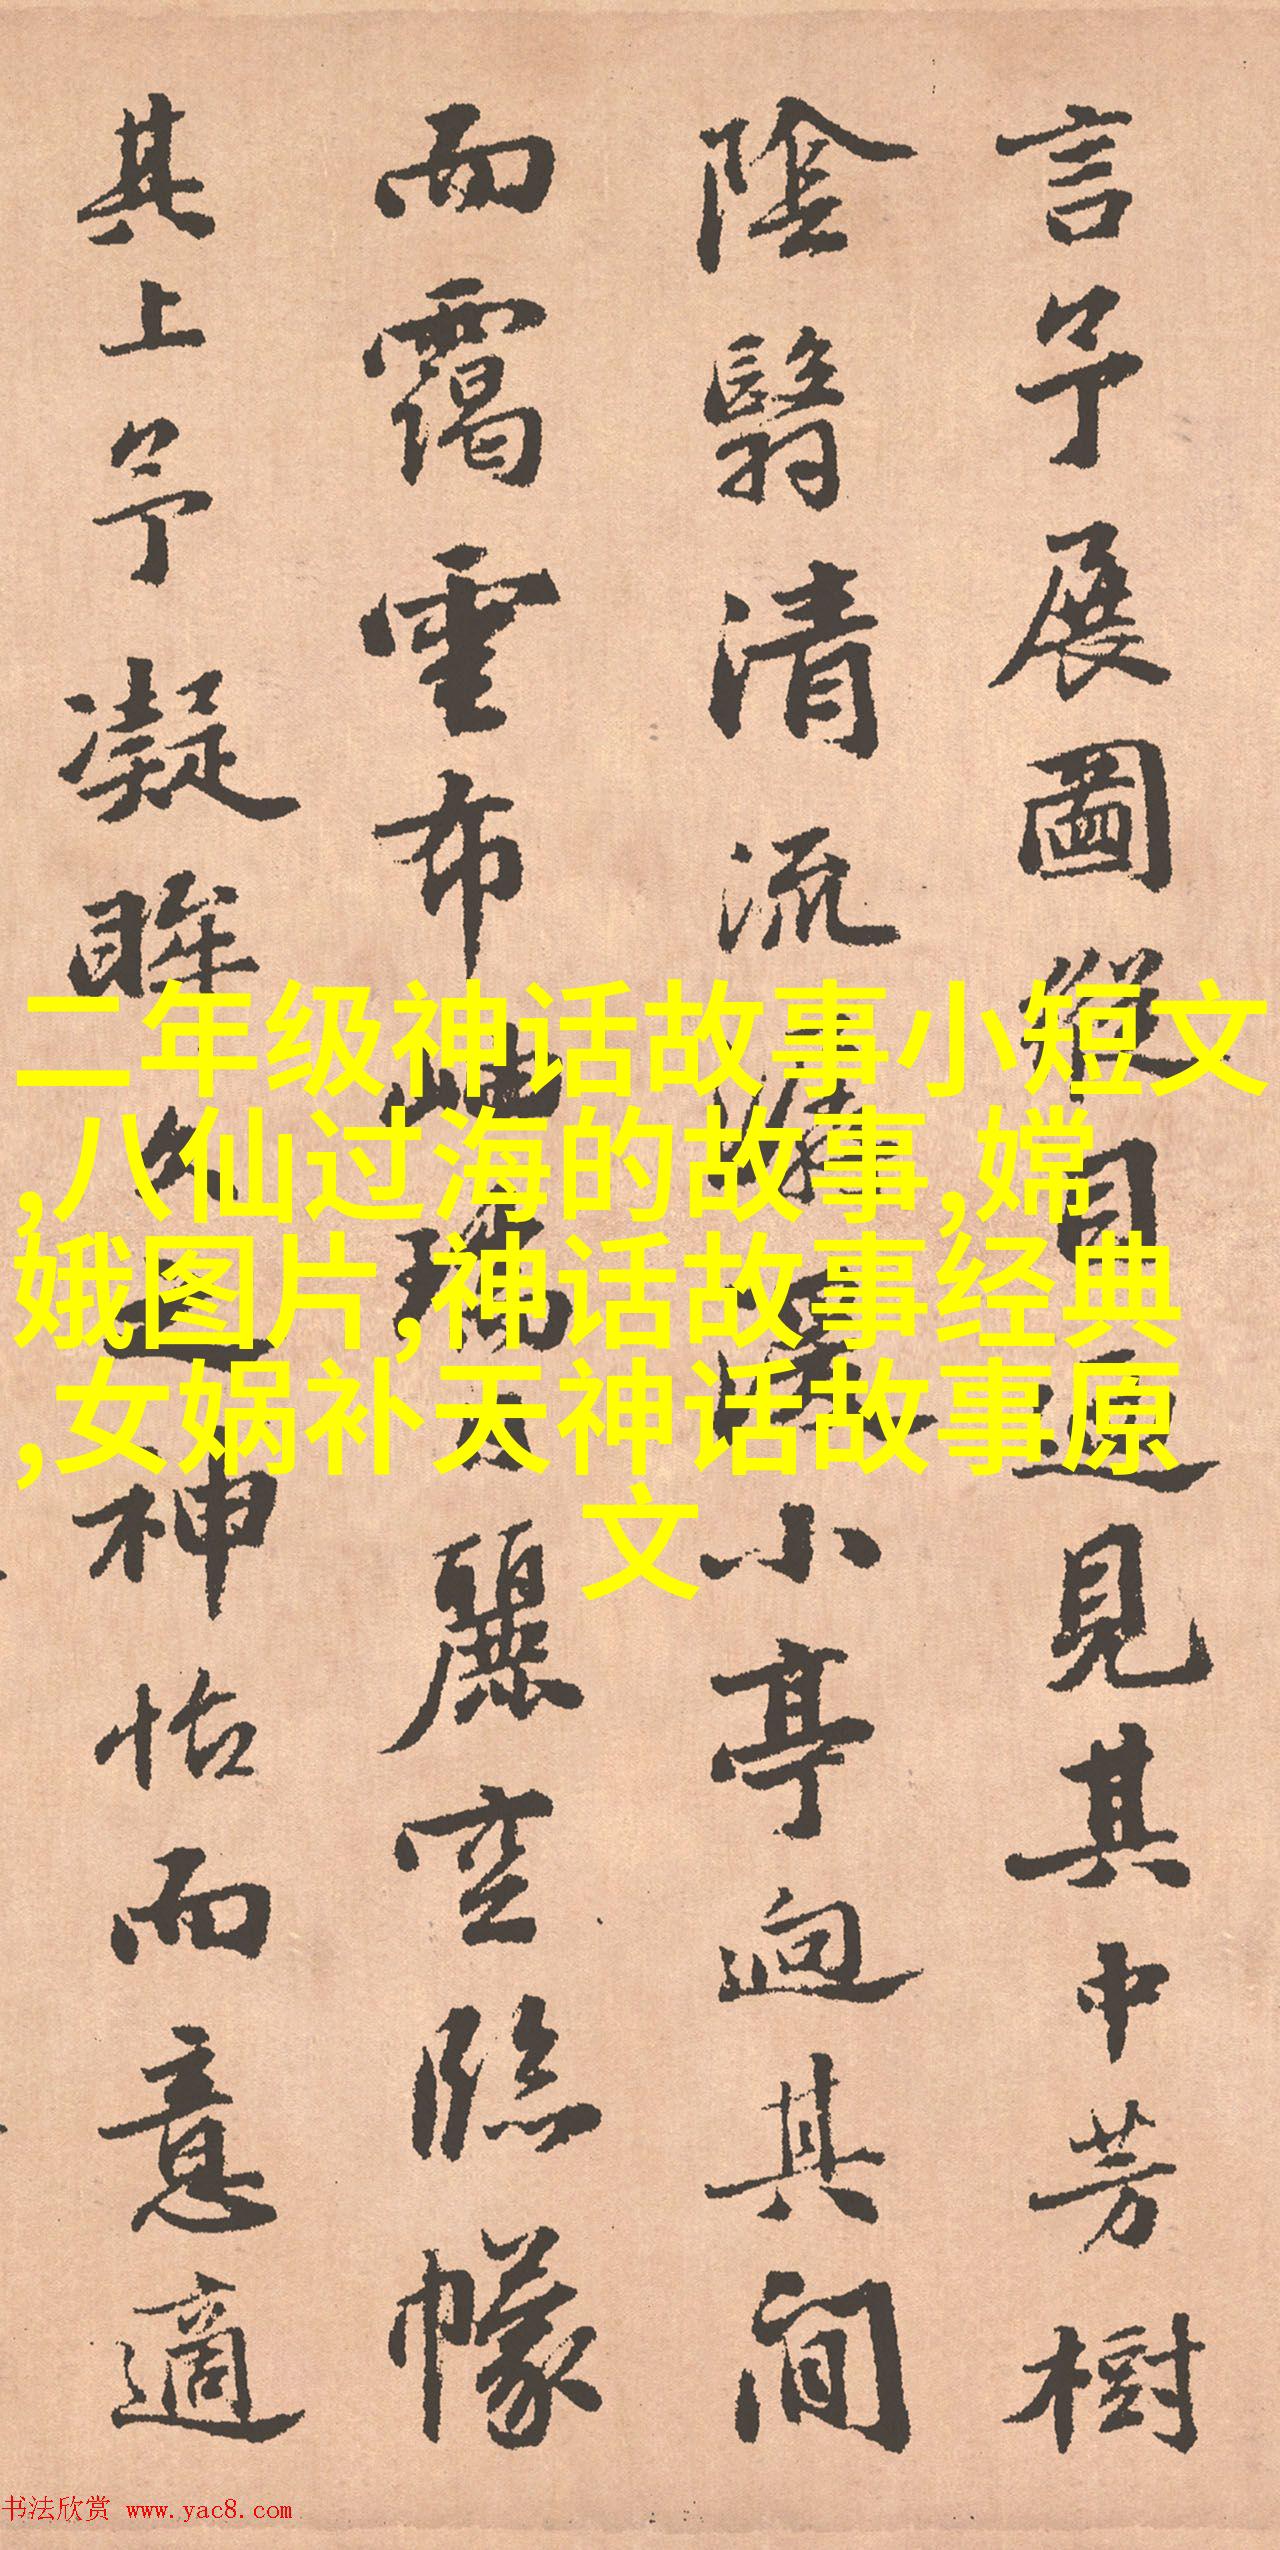 言予展圖縱目遥見其中芳樹
陰翳清流小亭迥其間
而靄雲布岫瑞麗空臨幪
其上予凝眸久之神怡而意適
二年级神话故事小短文
,八仙过海的故事,嫦
娥图片,神话故事经典
,女娲补天神话故事原
文
书法欣赏 www.yac8.com